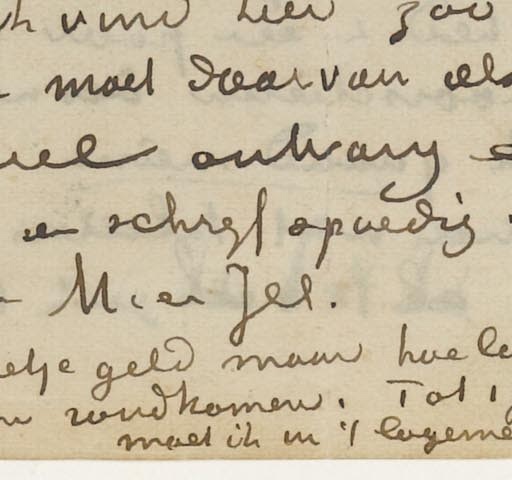 vind hier zoo
moet daarvan als
ontvang
en schrijf spoedig
M. en Jet.
geld maar hoe
rondkomen. Tot
moet ik in 't logeme